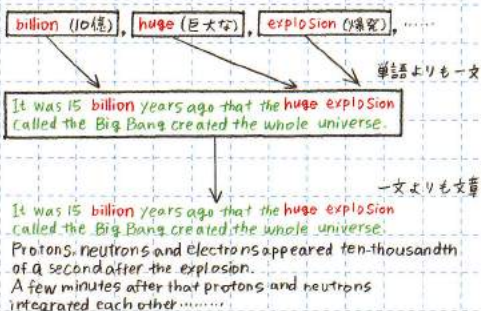 billion (10億), huge (巨大な), explosion (爆発), ……
単語よりも一文
It was 15 billion years ago that the huge explosion
called the Big Bang created the whole universe.
一文よりも文章
It was 15 billion years ago that the huge explosion
called the Big Bang created the whole universe.
Protons, neutrons and electrons appeared ten-thousandth
of a second after the explosion.
A few minutes after that protons and neutrons
integrated each other………